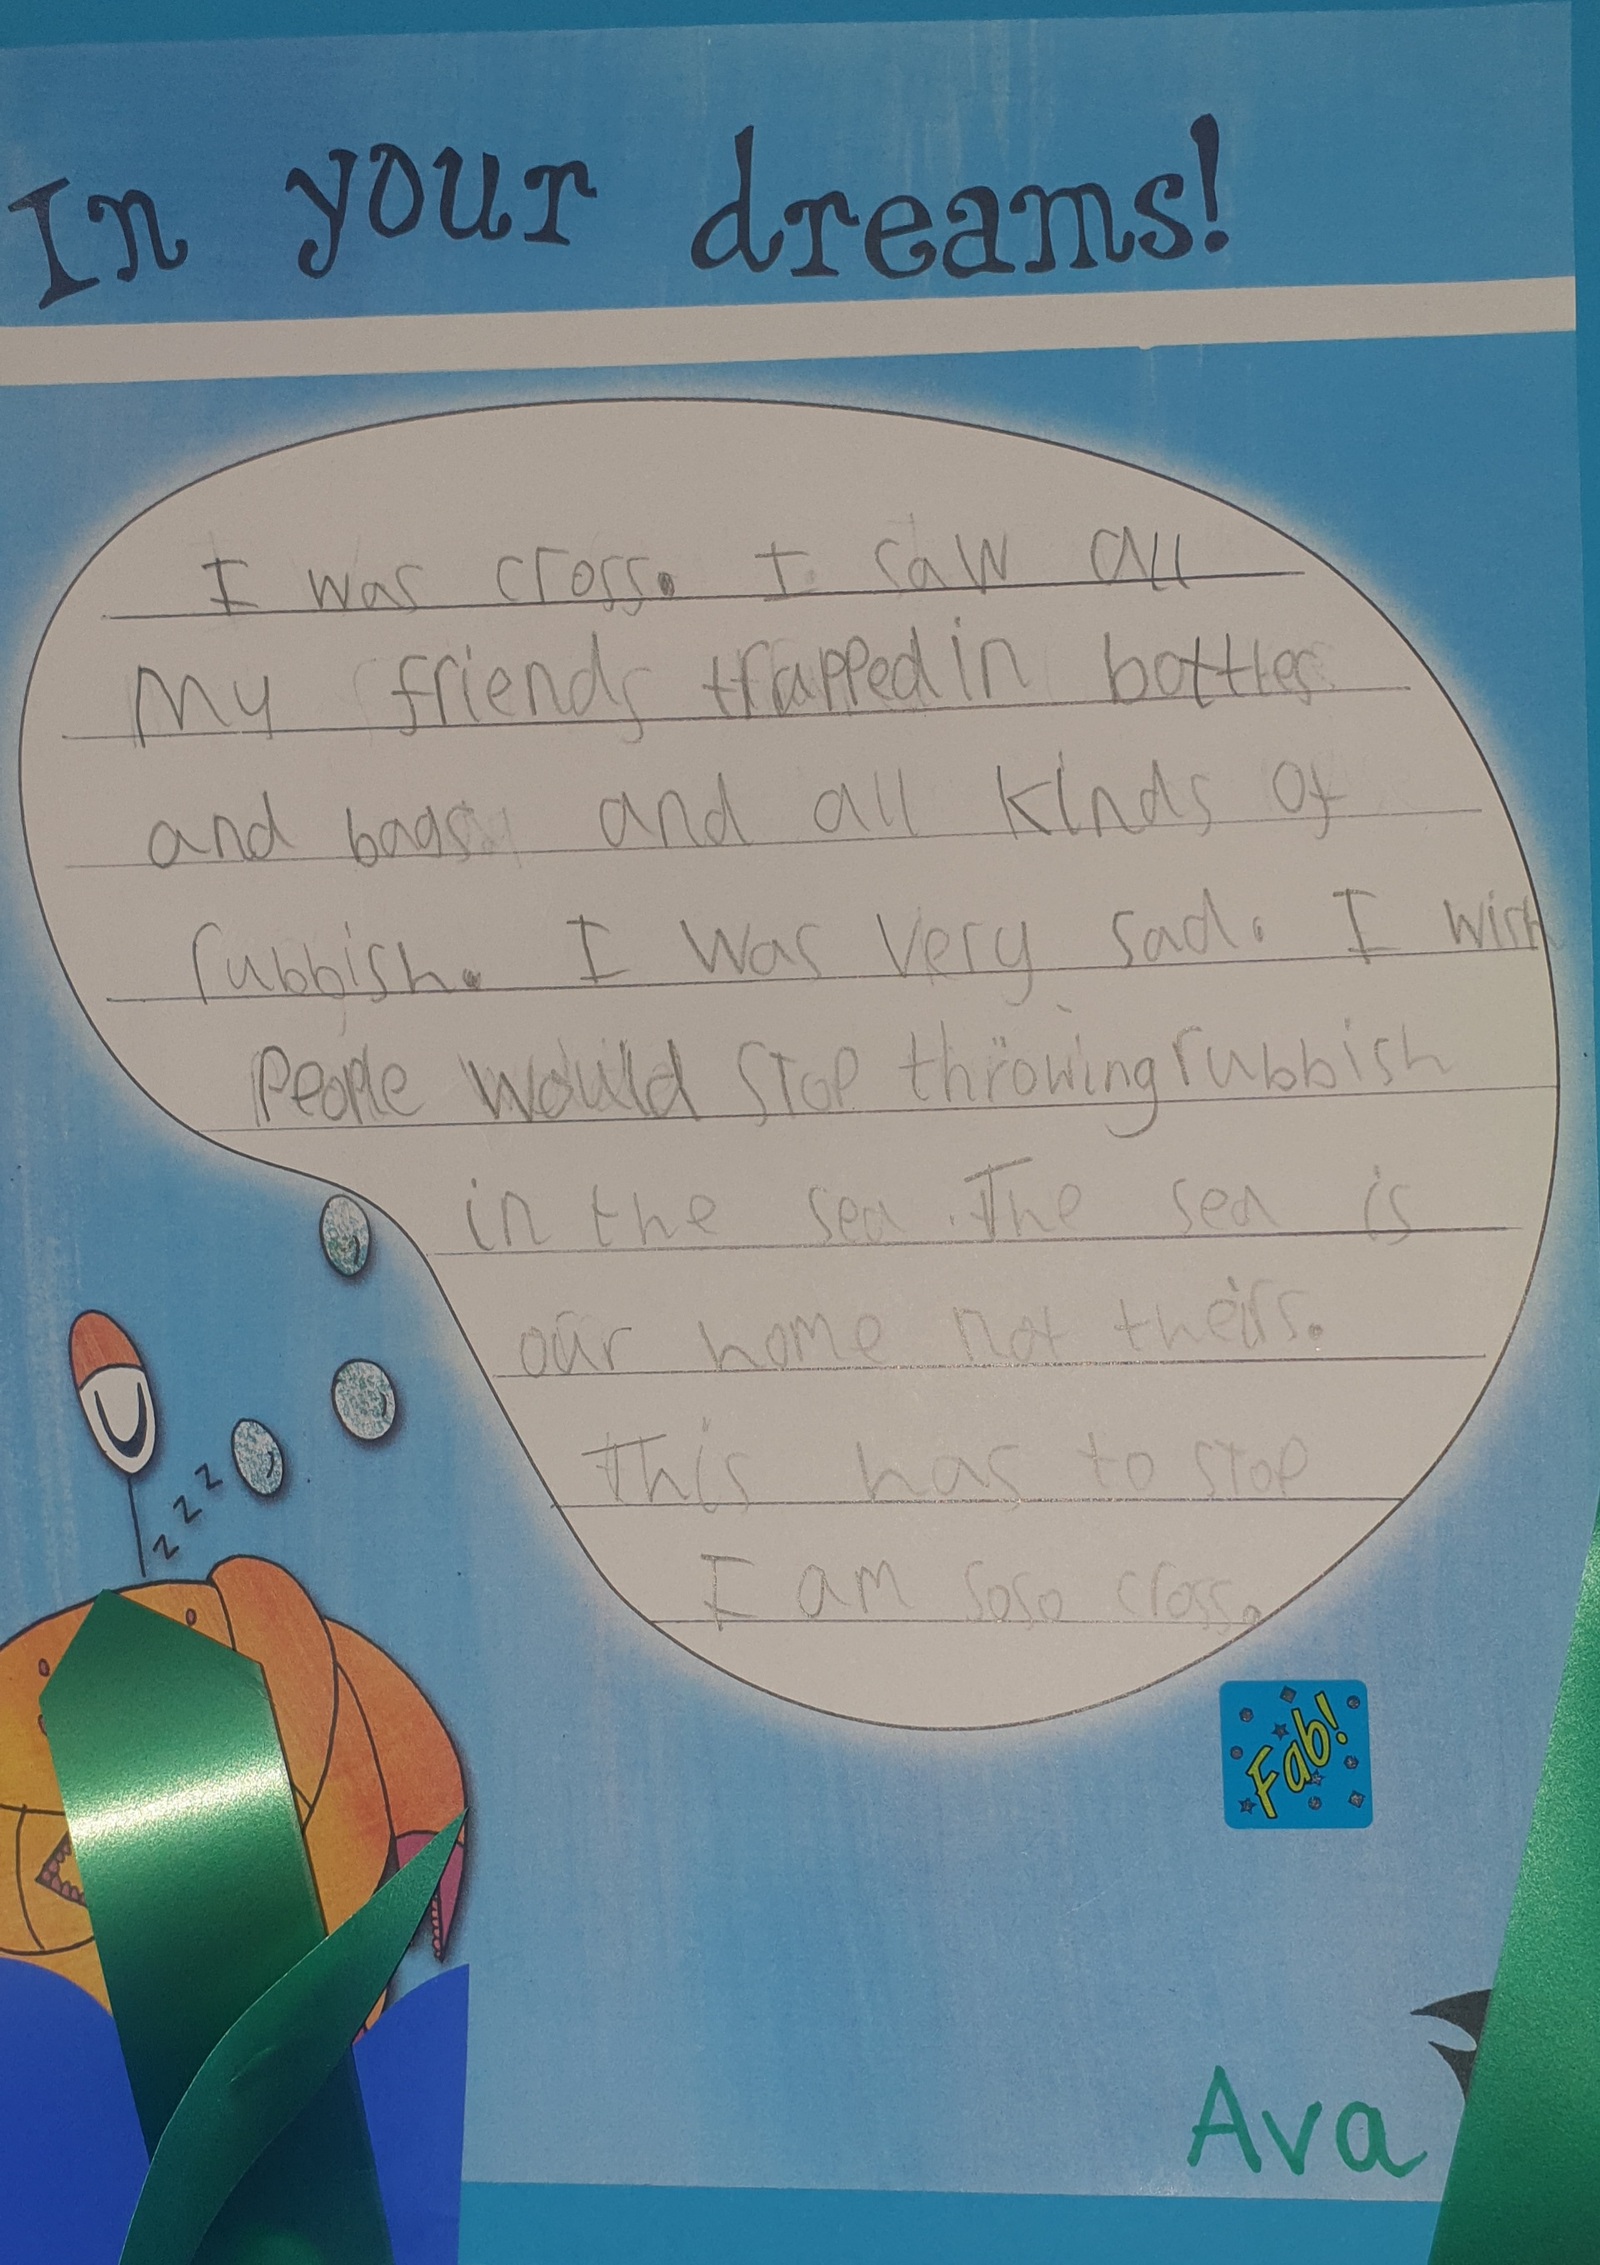 In your dreams!
I was cross. I saw all
My friends trapped in bottles
and bags and all kinds of
rubbish. I was very sad. I wish
People would stop throwing rubbish
in the sea. The sea is
our home not theirs.
This has to stop
I am soso cross.
z z z
Fab!
Ava